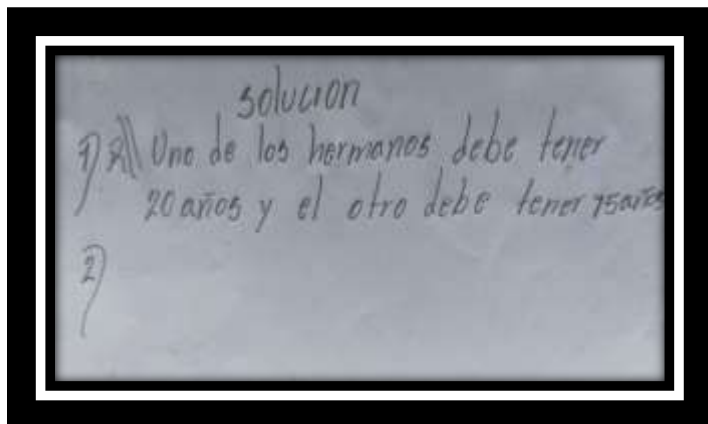 solución
1) R// Uno de los hermanos debe tener
20 años y el otro debe tener 15 años
2)